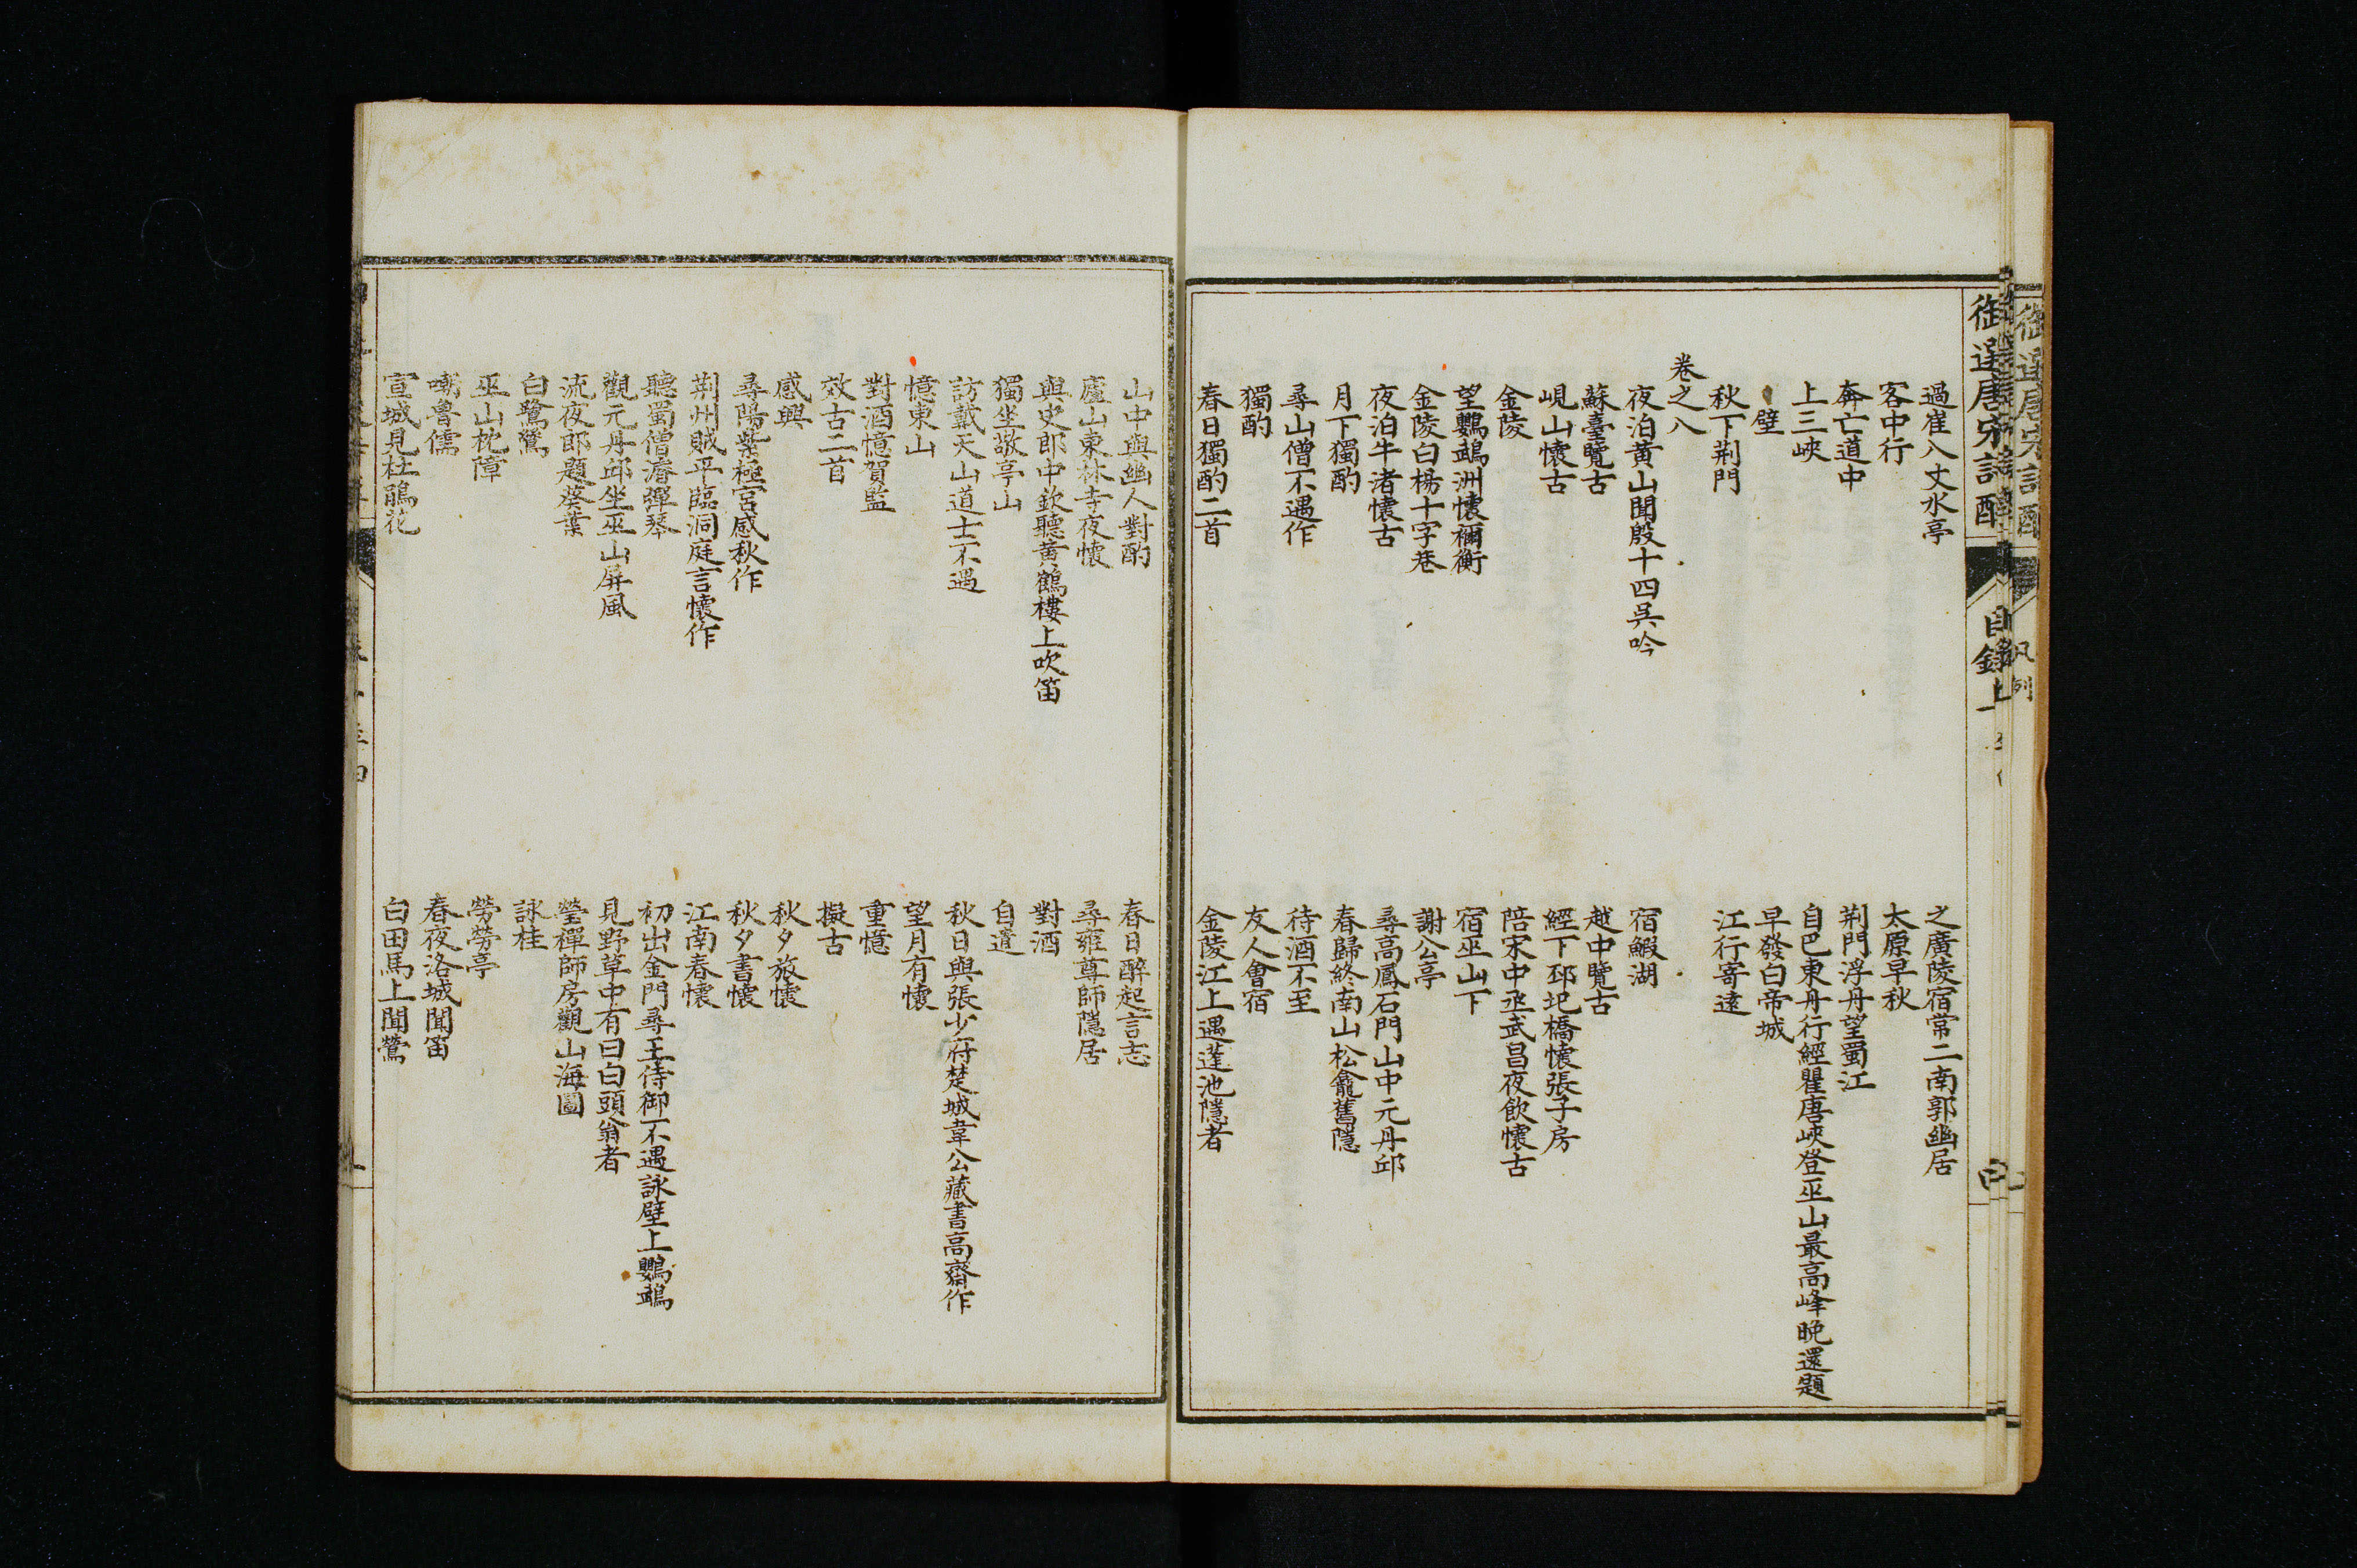 御選唐宋詩醇
目錄上
過崔八丈水亭
之廣陵宿常二南郭幽居
客中行
太原早秋
奔亡道中
荆門浮舟望蜀江
上三峽
自巴東舟行經瞿唐峽登巫山最高峰晚還題
壁
早發白帝城
秋下荆門
江行寄遠
卷之八
夜泊黄山聞殷十四吳吟
宿鰕湖
蘇臺覽古
越中覽古
峴山懷古
經下邳圯橋懷張子房
金陵
陪宋中丞武昌夜飲懷古
望鸚鵡洲懷禰衡
宿巫山下
金陵白楊十字巷
謝公亭
夜泊牛渚懷古
尋高鳳石門山中元丹邱
月下獨酌
春歸終南山松龕舊隱
尋山僧不遇作
待酒不至
獨酌
友人會宿
春日獨酌二首
金陵江上遇蓬池隱者
山中與幽人對酌
春日醉起言志
廬山東林寺夜懷
尋雍尊師隱居
與史郎中欽聽黄鶴樓上吹笛
對酒
獨坐敬亭山
自遣
訪戴天山道士不遇
秋日與張少府楚城韋公藏書高齋作
憶東山
望月有懷
對酒憶賀監
重憶
效古二首
擬古
感興
秋夕旅懷
尋陽紫極宮感秋作
秋夕書懷
荆州賊平臨洞庭言懷作
江南春懷
聽蜀僧濬彈琴
初出金門尋王侍御不遇詠壁上鸚鵡
觀元丹邱坐巫山屏風
見野草中有曰白頭翁者
流夜郎題葵葉
瑩禪師房觀山海圖
白鷺鷥
詠桂
巫山枕障
勞勞亭
嘲魯儒
春夜洛城聞笛
宣城見杜鵑花
白田馬上聞鶯